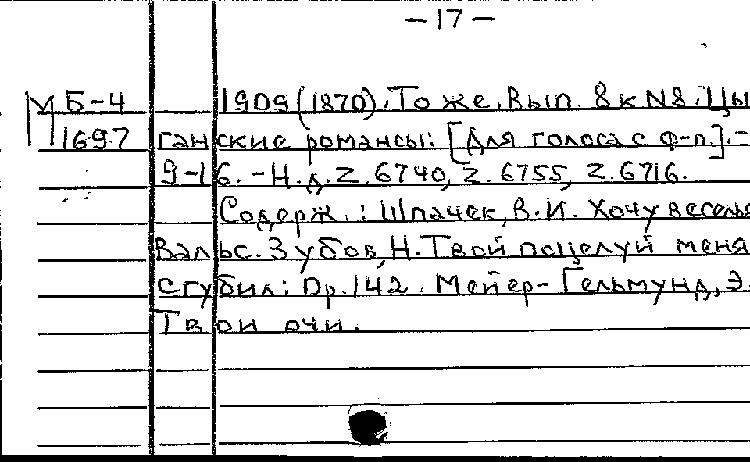 -17-
М Б-4 1909 (1870). То же. Вып. 8 к N8. Цы
1697 ганские романсы: [Для голоса с ф-п.]. -
9-16. - Н.д. Z. 6740, Z. 6755, Z. 6716.
Содерж.: Шпачек, В.И. Хочу веселья
Вальс. Зубов, Н. Твой поцелуй меня
сгубил: Op. 142. Мейер-Гельмунд, Э.
Твои очи.